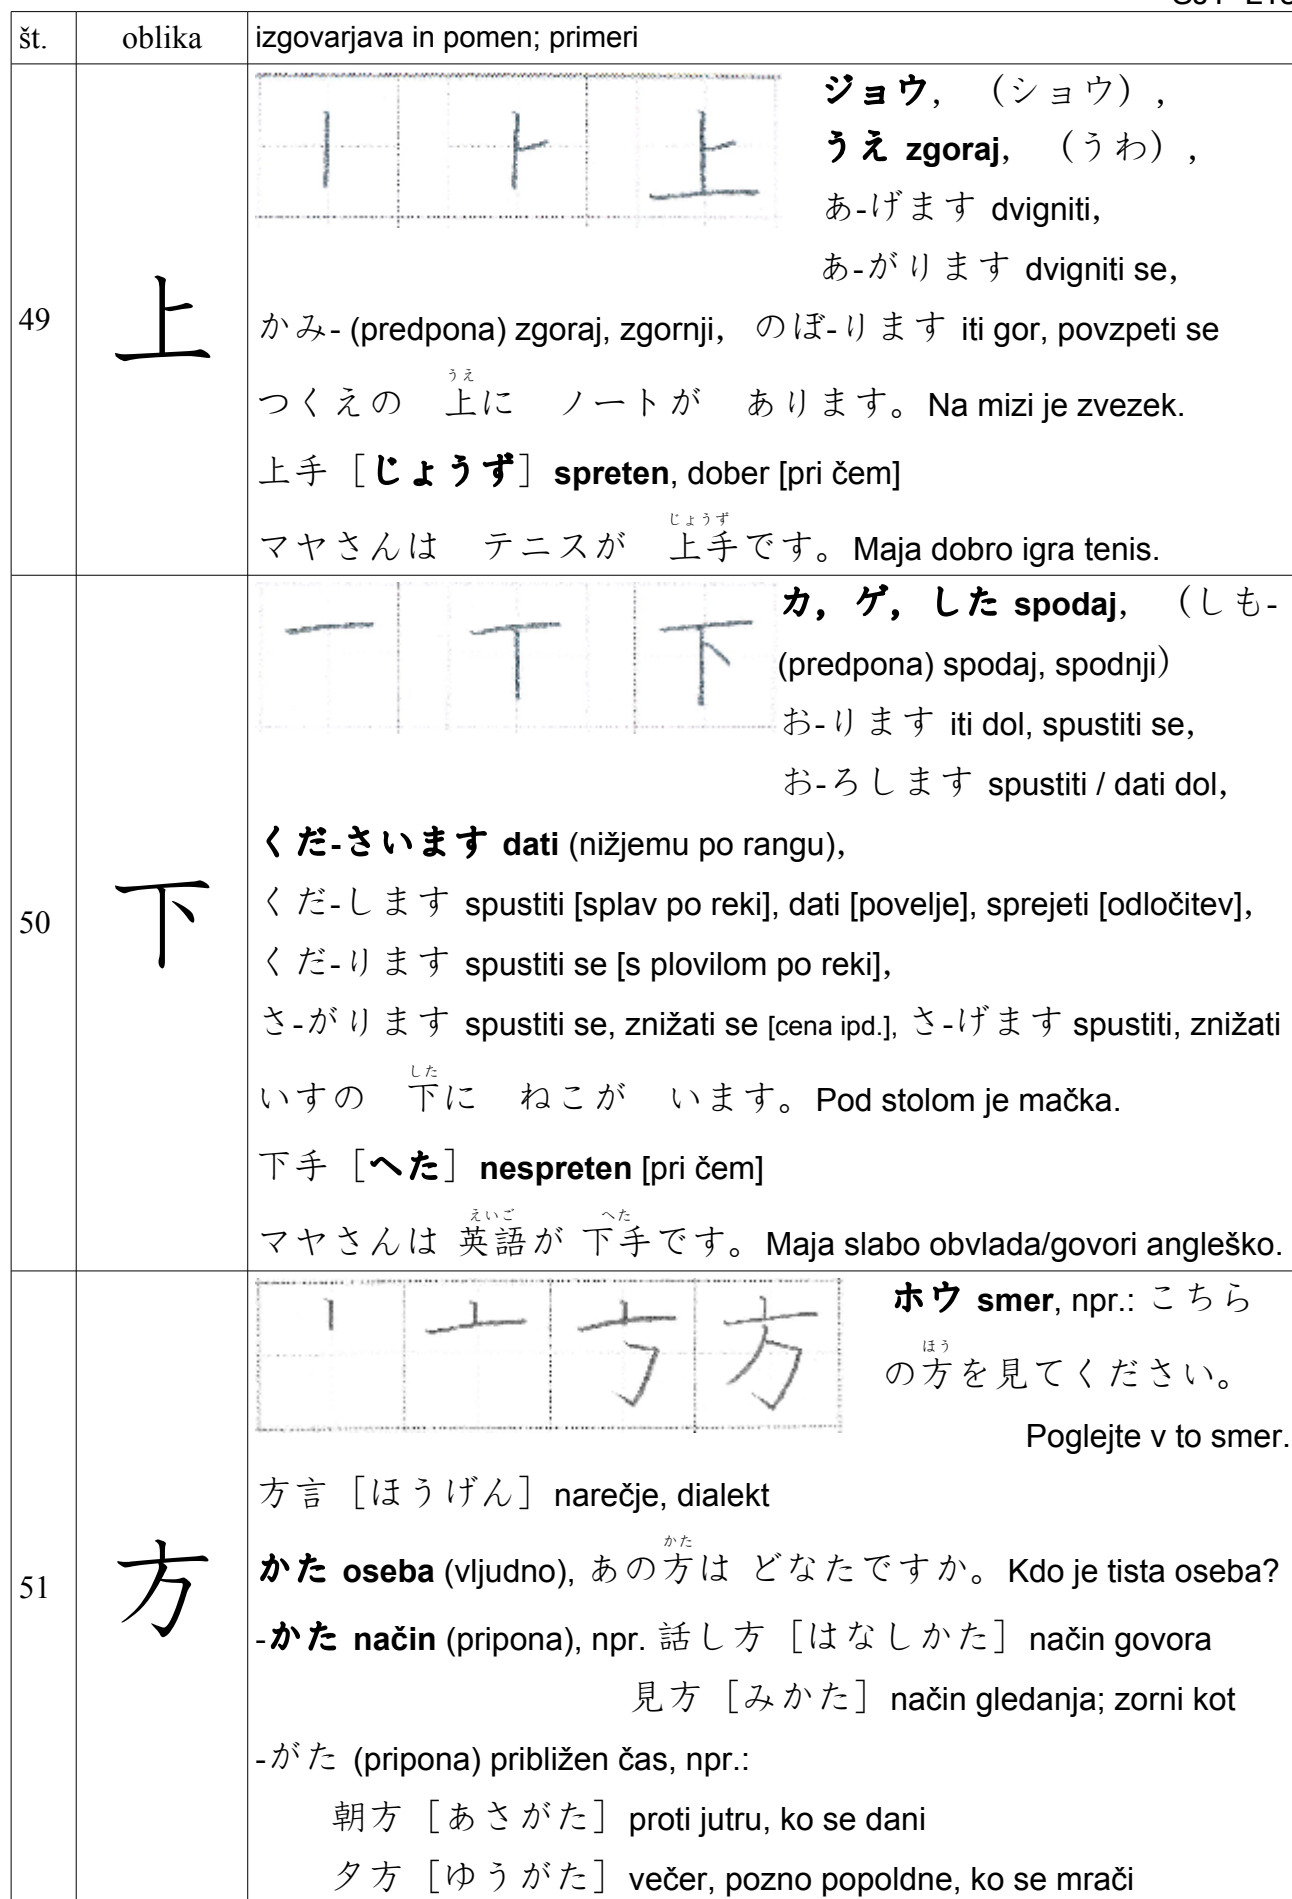 št. oblika izgovarjava in pomen; primeri
49 上
ジョウ, （ショウ）,
うえ zgoraj, （うわ）,
あ-げます dvigniti,
あ-がります dvigniti se,
かみ- (predpona) zgoraj, zgornji, のぼ-ります iti gor, povzpeti se
うえ
つくえの 上に ノートが あります。Na mizi je zvezek.
上手［じょうず］spreten, dober [pri čem]
じょうず
マヤさんは テニスが 上手です。Maja dobro igra tenis.
50 下
カ, ゲ, した spodaj, （しも-
(predpona) spodaj, spodnji）
お-ります iti dol, spustiti se,
お-ろします spustiti / dati dol,
くだ-さいます dati (nižjemu po rangu),
くだ-します spustiti [splav po reki], dati [povelje], sprejeti [odločitev],
くだ-ります spustiti se [s plovilom po reki],
さ-がります spustiti se, znižati se [cena ipd.], さ-げます spustiti, znižati
した
いすの 下に ねこが います。Pod stolom je mačka.
下手［へた］nespreten [pri čem]
えいご へた
マヤさんは 英語が 下手です。Maja slabo obvlada/govori angleško.
51 方
ホウ smer, npr.: こちら
ほう
の方を見てください。
Poglejte v to smer.
方言［ほうげん］narečje, dialekt
かた
かた oseba (vljudno), あの方は どなたですか。Kdo je tista oseba?
-かた način (pripona), npr. 話し方［はなしかた］način govora
見方［みかた］način gledanja; zorni kot
-がた (pripona) približen čas, npr.:
朝方［あさがた］proti jutru, ko se dani
夕方［ゆうがた］večer, pozno popoldne, ko se mrači